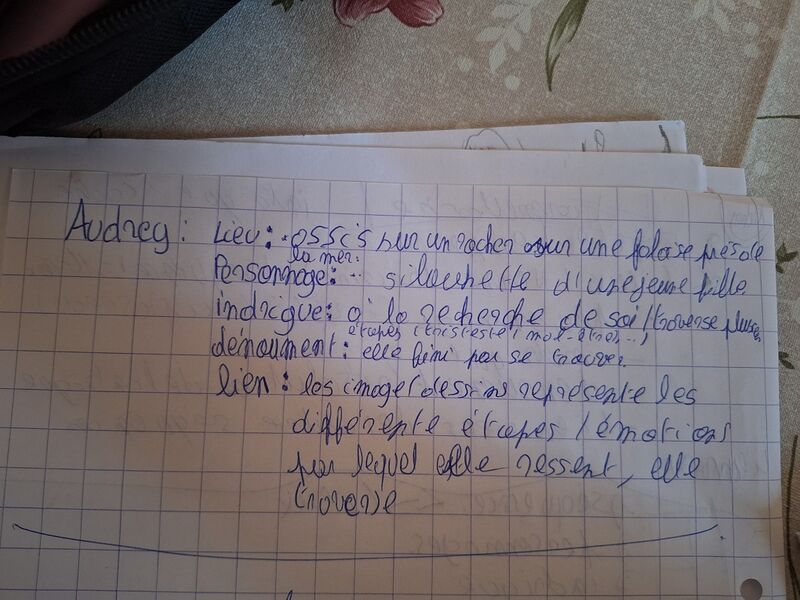 Audrey : Lieu : assis sur un rocher sur une falaise près de
la mer.
Personnage : silouhette d'une jeune fille
indrigue : à la recherche de soi / traverse plusieu
étapes (tristesse, mal-être, ...)
dénoument : elle fini par se trouver.
lien : les image / dessins représente les
différente étapes / émotions
par lequel elle ressent, elle
traverse